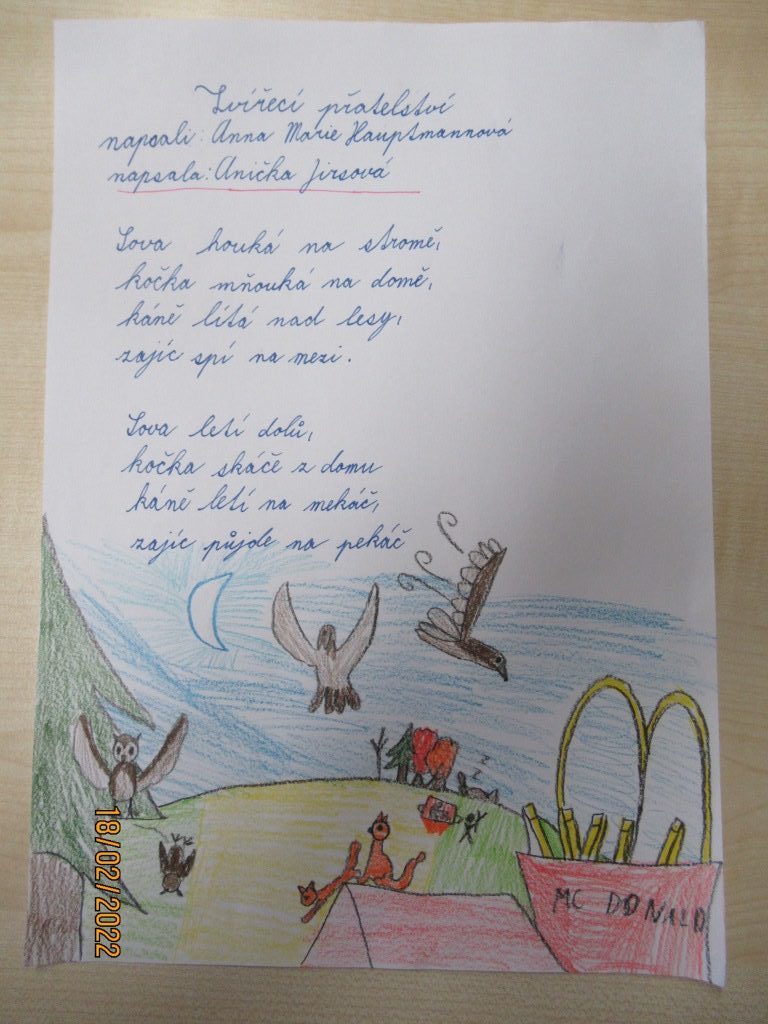 Zvířecí přatelství
napsali: Anna Marie Hauptmannová
napsala: Anička Jirsová
Sova houká na stromě,
kočka mňouká na domě,
káně lítá nad lesy,
zajíc spí na mezi.
Sova letí dolů,
kočka skáče z domu
káně letí na mekáč,
zajíc půjde na pekáč
z
z
MC DONALD
18/02/2022